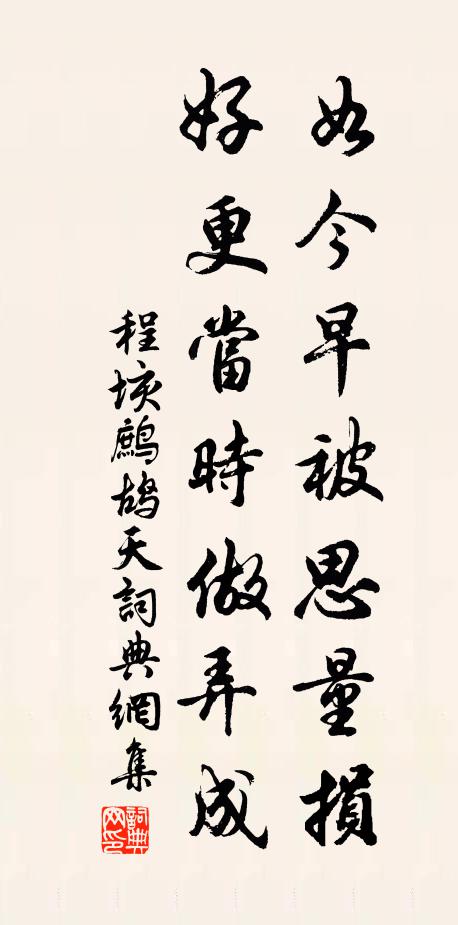 如今早被思量損
好更當時做弄成
程垓鷓鴣天詞典網集
詞典網印